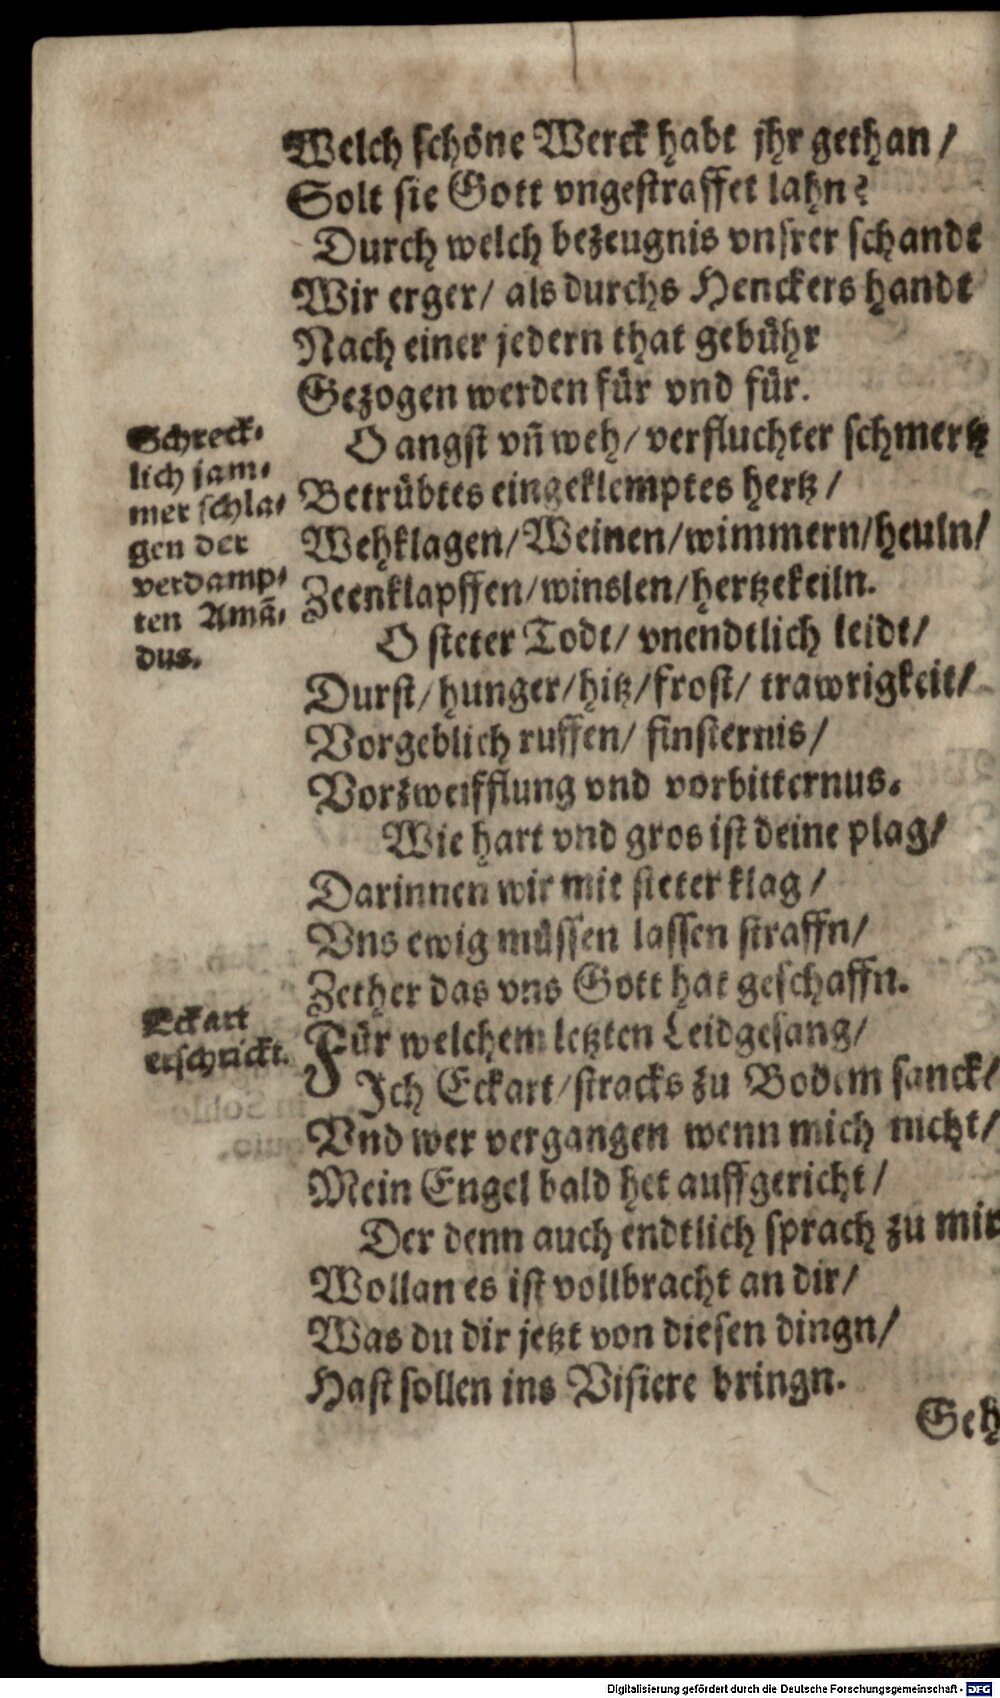 Welch schöne Werck habt jhr gethan /
Solt sie Gott vngestraffet lahn?
Durch welch bezeugnis vnsrer schande
Wir erger / als durchs Henckers handt
Nach einer jedern that gebührt
Gezogen werden für vnd für.
Schreck-
lich jam-
mer schla-
gen der
verdamp-
ten Amā-
dus.
O angst vn̄ weh / verfluchter schmertz
Betrübtes eingeklemptes hertz /
Wehklagen / Weinen / wimmern / heuln /
Zeenklapffen / winslen / hertzekeiln.
O steter Todt / vnendtlich leidt /
Durst / hunger / hitz / frost / trawrigkeit /
Vorgeblich ruffen / finsternis /
Vorzweifflung vnd vorbitternus.
Wie hart vnd gros ist deine plag /
Darinnen wir mit steter klag /
Vns ewig müssen lassen straffn /
Zether das vns Gott hat geschaffn.
Eckart
erschrickt.
Für welchem letzten Leidgesang /
Jch Eckart / stracks zu Bodem sanck /
Vnd wer vergangen wenn mich nicht /
Mein Engel bald het auffgericht /
Der denn auch endtlich sprach zu mir
Wollan es ist vollbracht an dir /
Was du dir jetzt von diesen dingn /
Hast sollen ins Visiere bringn.
Geh
Digitalisierung gefördert durch die Deutsche Forschungsgemeinschaft - DFG